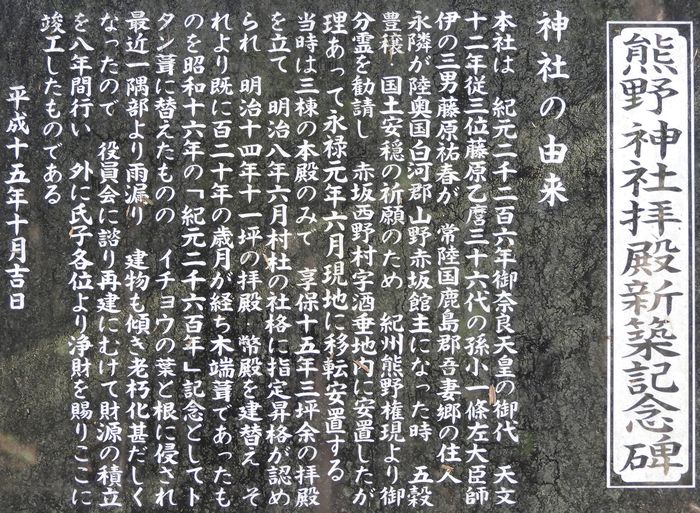 熊野神社拝殿新築記念碑
神社の由来
本社は 紀元二千二百六年御奈良天皇の御代 天文
十二年従三位藤原乙麿三十六代の孫小一條左大臣師
伊の三男藤原祐春が 常陸国鹿島郡吾妻郷の住人
永隣が陸奥国白河郡山野赤坂館主になった時 五穀
豊穣 国土安穏の祈願のため 紀州熊野権現より御
分霊を勧請し 赤坂西野村字酒垂地内に安置したが
理あって永禄元年六月現地に移転安置する
当時は三棟の本殿のみて 享保十五年三坪余の拝殿
を立て 明治八年六月村社の社格に指定昇格が認め
られ 明治十四年十一坪の拝殿 幣殿を建替え そ
れより既に百二十年の歳月が経ち木端葺であったも
のを昭和十六年の「紀元二千六百年」記念としてト
タン葺に替えたものの イチョウの葉と根に侵され
最近一隅部より雨漏り 建物も傾き老朽化甚だしく
なったので 役員会に諮り再建にむけて財源の積立
を八年間行い 外に氏子各位より浄財を賜りここに
竣工したものである
平成十五年十月吉日